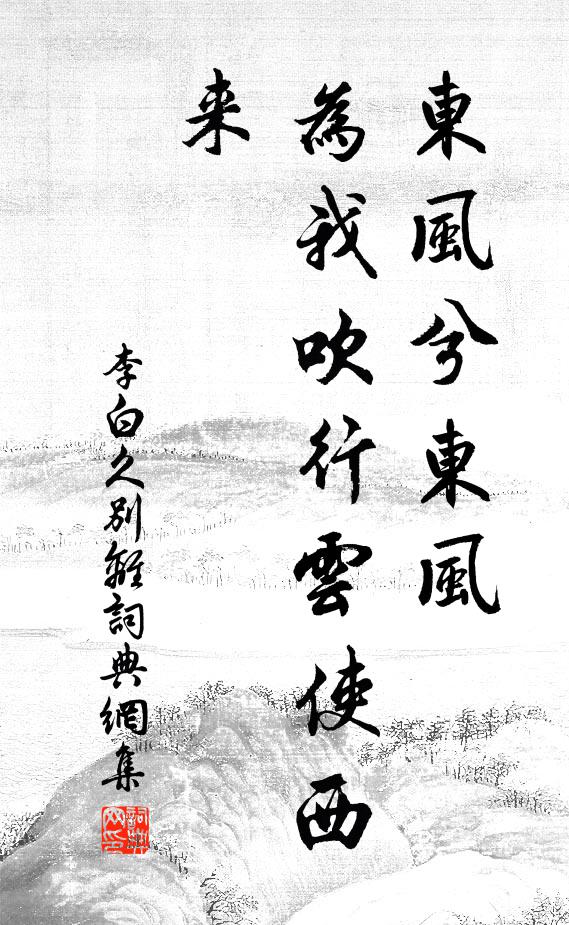 東風兮東風
為我吹行雲使西
来
李白久別離詞典網集